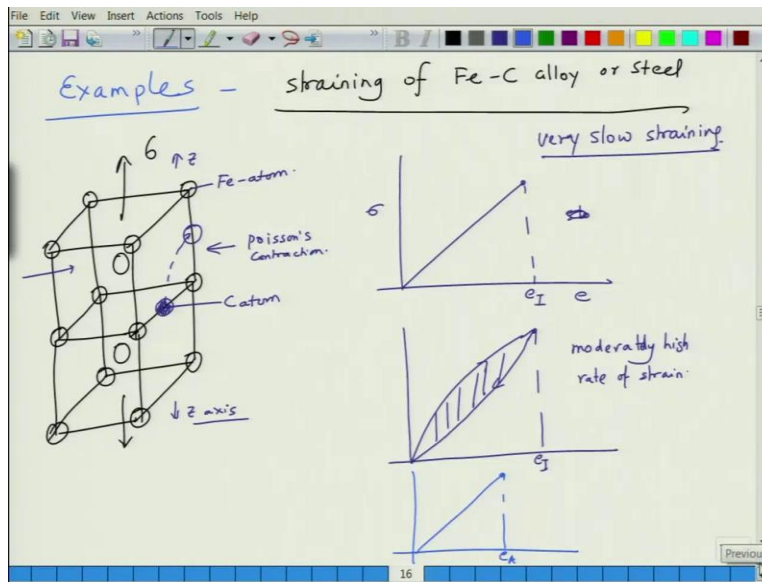 File Edit View Insert Actions Tools Help
Examples - straining of Fe-C alloy or steel
very slow straining.
σ
↑ z
Fe-atom.
Poisson's
contraction.
C atom
↓ z axis
σ
e_I e
moderately high
rate of strain.
e_I
e_A
16
Previou